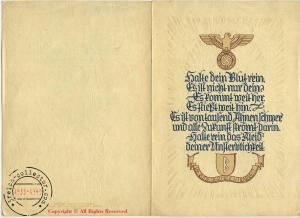 Halte dein Blut rein,
Es ist nicht nur dein
Es kommt weit her,
Es fließt weit hin.
Es ist von tausend Ahnen schwer
und alle Zukunft strömt darin.
Halte rein das Kleid
deiner Unsterblichkeit
Copyright © All Rights Reserved